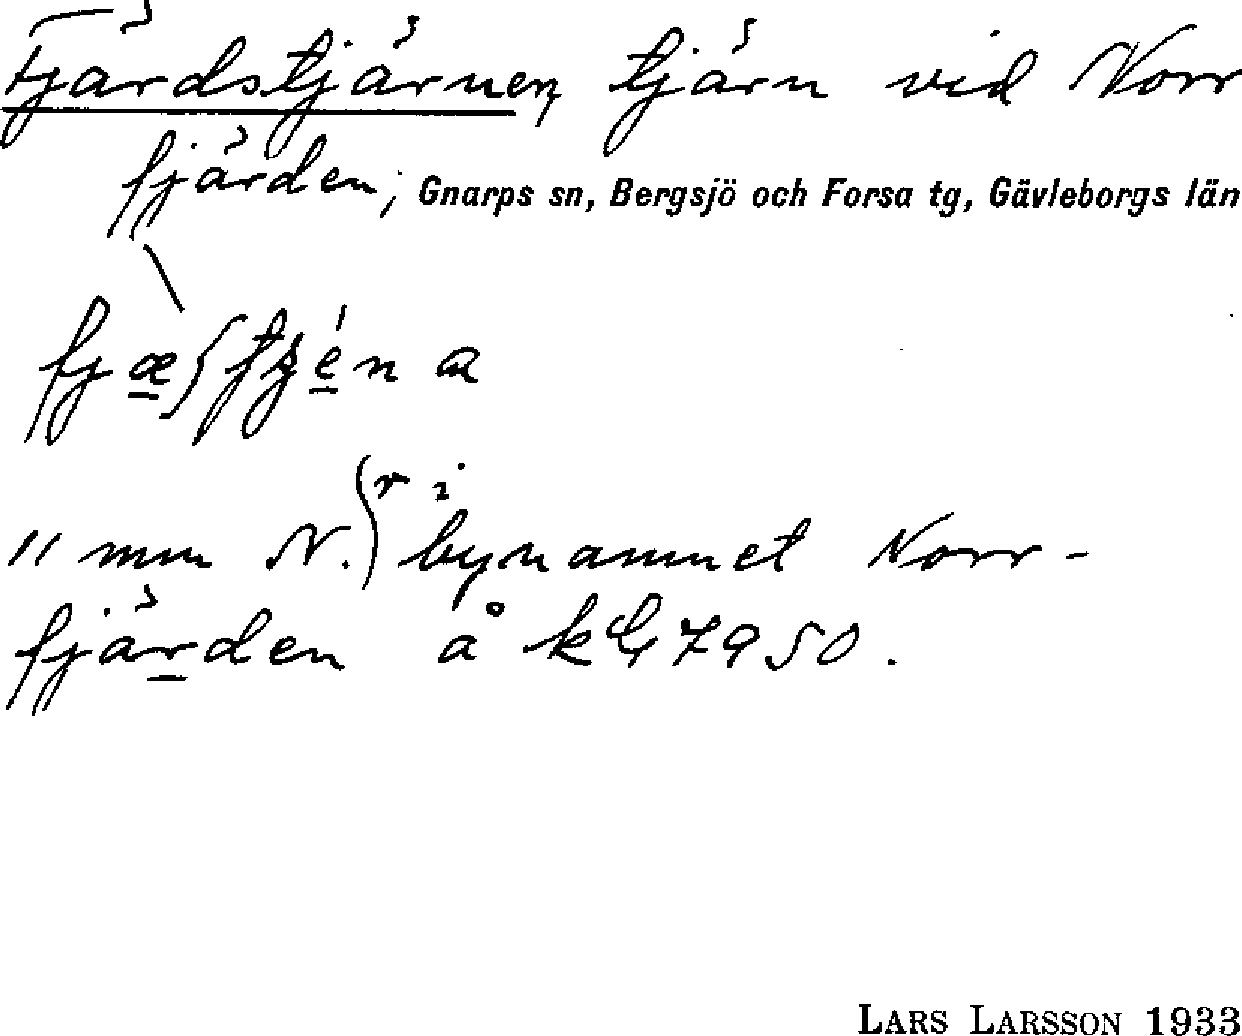 Fjärdstjärnen, tjärn vid Norr
fjärden; Gnarps sn, Bergsjö och Forsa tg, Gävleborgs län
11 mm N. r i bynamnet Norr-
fjärden å
LARS LARSSON 1933